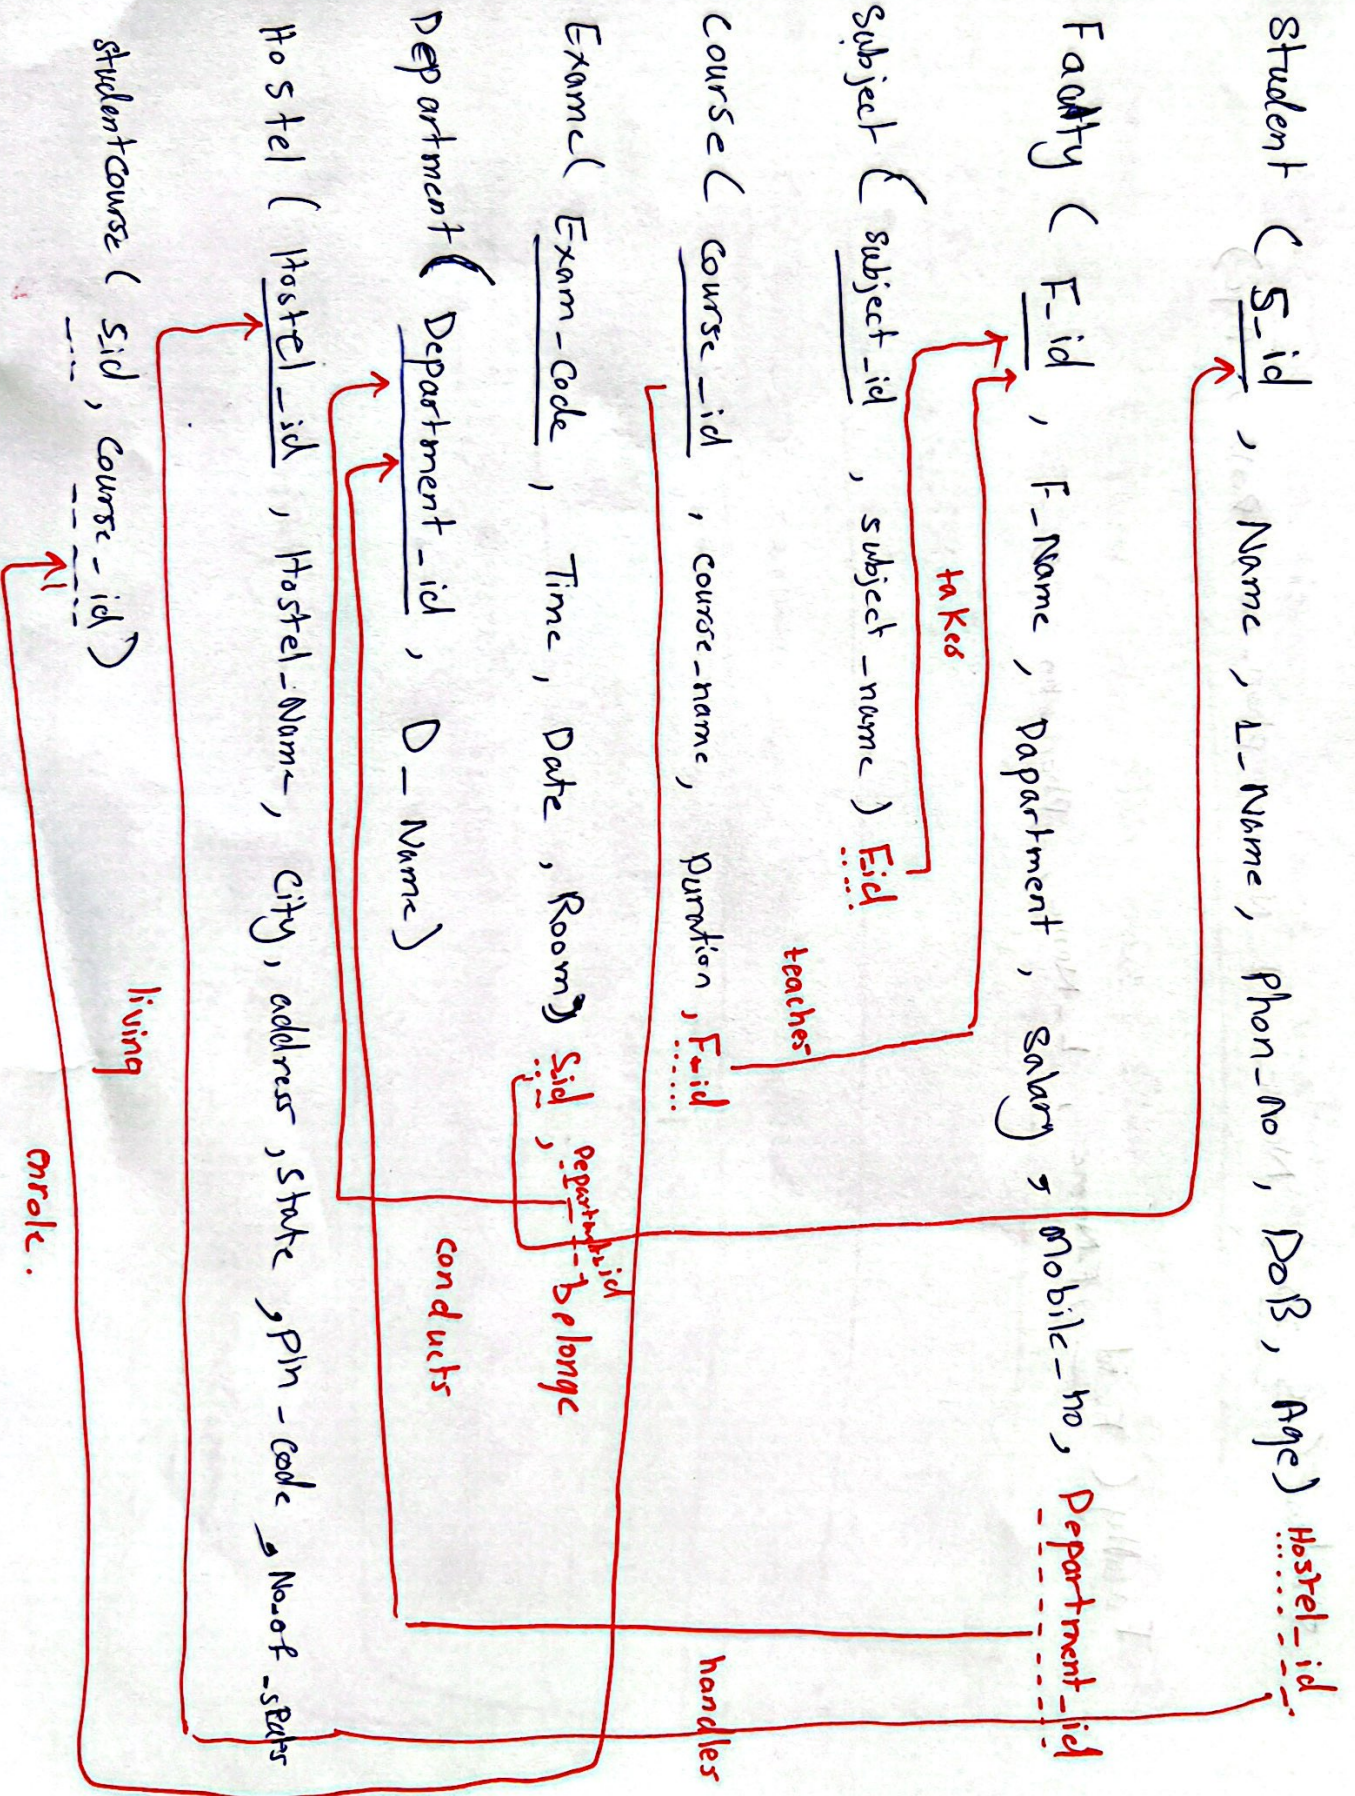 Student ( S_id , Name , L_Name, phon_no , DoB, Age) Hostel_id
Faculty ( F_id , F_Name , Dapartment , salary , mobile_no, Department_id
takes
Subject ( subject_id , subject_name ) F_id
teaches
Course ( course_id , course_name, Duration , F_id
handles
Exame( Exam_Code , Time , Date , Room) S_id , Department_id
belonge
Department( Department_id , D_Name)
conducts
Hostel ( Hostel_id , Hostel_Name, City, address , state , pin-code , No_of_seats
living
studentcourse ( sid , course_id)
enrole.